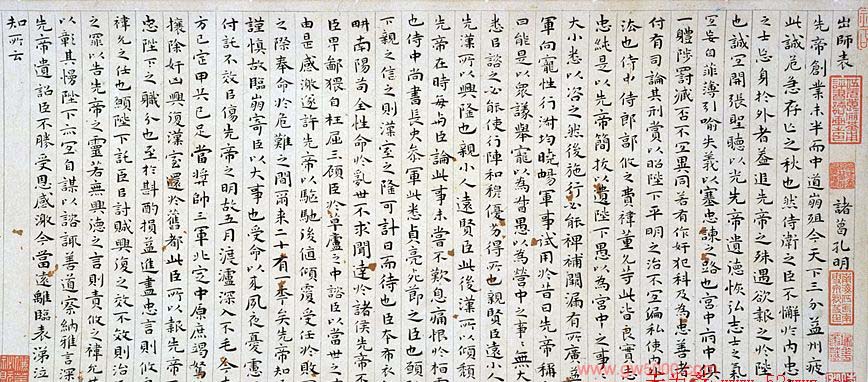 出師表
諸葛孔明
先帝創業未半而中道崩殂今天下三分益州疲
此誠危急存亡之秋也然侍衛之臣不懈於內忠
之士忘身於外者蓋追先帝之殊遇欲報之於陛
也誠宜開張聖聽以光先帝遺德恢弘志士之氣
宜妄自菲薄引喻失義以塞忠諫之路也宮中府中
一體陟罰臧否不宜異同若有作奸犯科及為忠善者
付有司論其刑賞以昭陛下平明之治不宜偏私使內
法也侍中侍郎郭攸之費禕董允等此皆良實志
忠純是以先帝簡拔以遺陛下愚以為宮中之事事
大小悉以咨之然後施行必能裨補闕漏有所廣益
軍向寵性行淑均曉暢軍事試用於昔日先帝稱
曰能是以眾議舉寵以為督愚以為營中之事事無大
悉以諮之必能使行陣和穆優劣得所也親賢臣遠小人
先漢所以興隆也親小人遠賢臣此後漢所以傾頹
先帝在時每與臣論此事未嘗不歎息痛恨於桓靈
也侍中尚書長史參軍此悉貞亮死節之臣也願
下親之信之則漢室之隆可計日而待也臣本布衣
畊南陽苟全性命於亂世不求聞達於諸侯先帝不
臣卑鄙猥自枉屈三顧臣於草廬之中諮臣以當世之
由是感激遂許先帝以驅馳後值傾覆受任於敗
之際奉命於危難之間爾來二十有一年矣先帝知
謹慎故臨崩寄臣以大事也受命以來夙夜憂慮
付託不效臣傷先帝之明故五月渡瀘深入不毛今
方已定甲兵已足當獎帥三軍北定中原庶竭駑
攘除奸凶興復漢室還於舊都此臣所以報先帝
忠陛下之職分也至於斟酌損益進盡忠言則攸
禕允之任也願陛下託臣以討賊興復之效不效則治
之罪以告先帝之靈若無興德之言則責攸之禕允
以彰其慢陛下亦宜自謀以諮諏善道察納雅言深
先帝遺詔臣不勝受恩感激今當遠離臨表涕泣
知所云